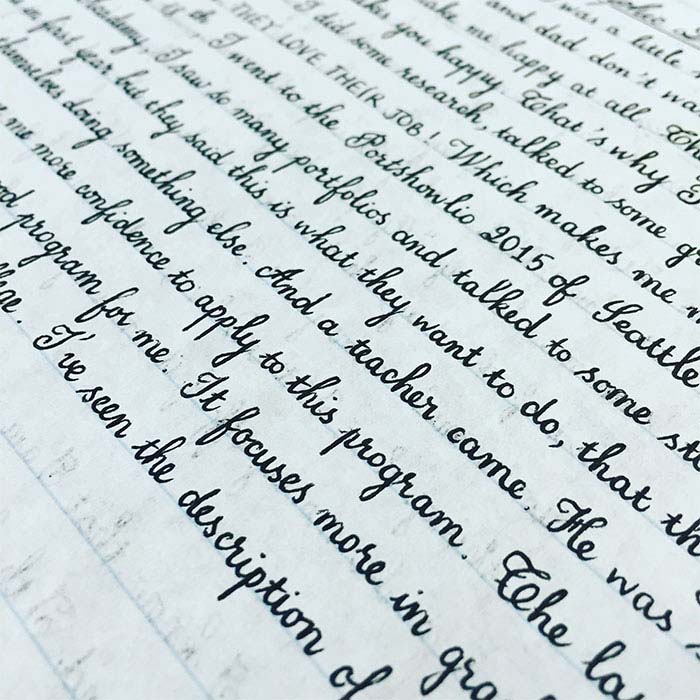 was a little
and dad don't
me happy at all
you happy That's why I
I did some research, talked to some
THEY LOVE THEIR JOB! Which makes me
th I went to the Portshowlio 2015 of Seattle
I saw so many portfolios and talked to some
in first year but they said this is what they want to do, that
themselves doing something else. And a teacher came. He was
me more confidence to apply to this program. The
program for me. It focuses more in
I've seen the description of